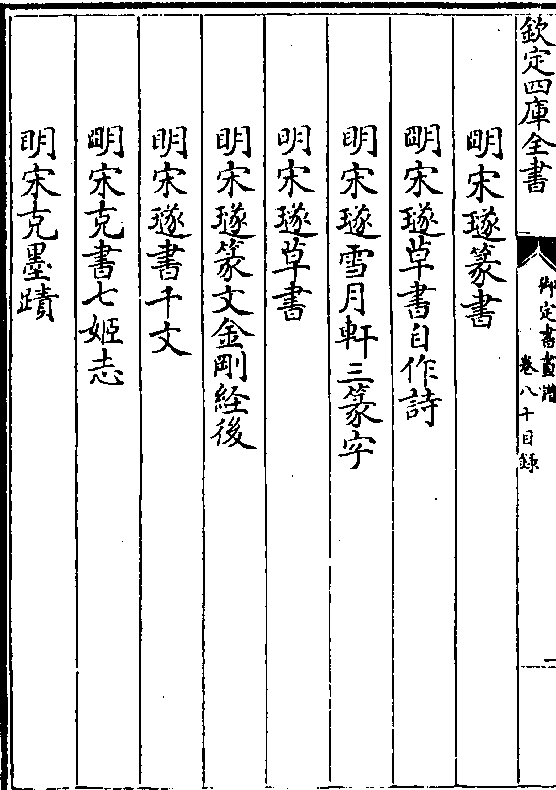 欽定四庫全書
御定書畫譜
卷八十目錄
一
明宋璲篆書
明宋璲草書自作詩
明宋璲雪月軒三篆字
明宋璲草書
明宋璲篆文金剛經後
明宋璲書千文
明宋克書七姬志
明宋克墨蹟